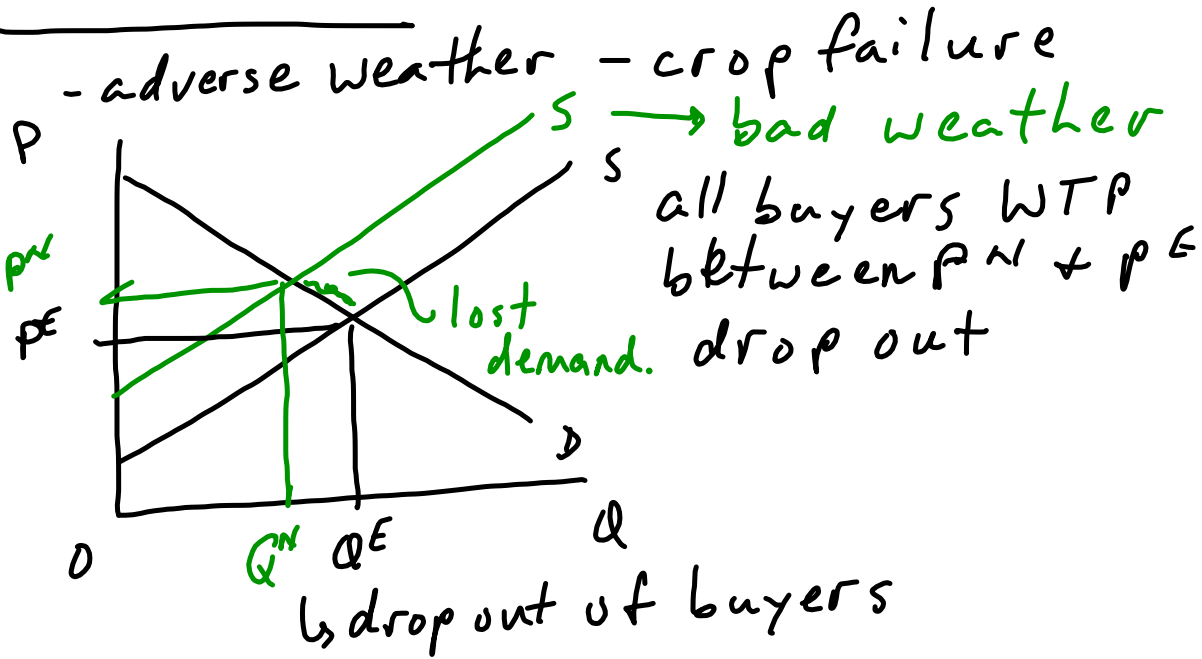 - adverse weather - crop failure
P
S → bad weather
S
all buyers WTP
between P^N + P^E
drop out
P^N
P^E
lost
demand.
D
O
Q^N
Q^E
Q
↳ drop out of buyers